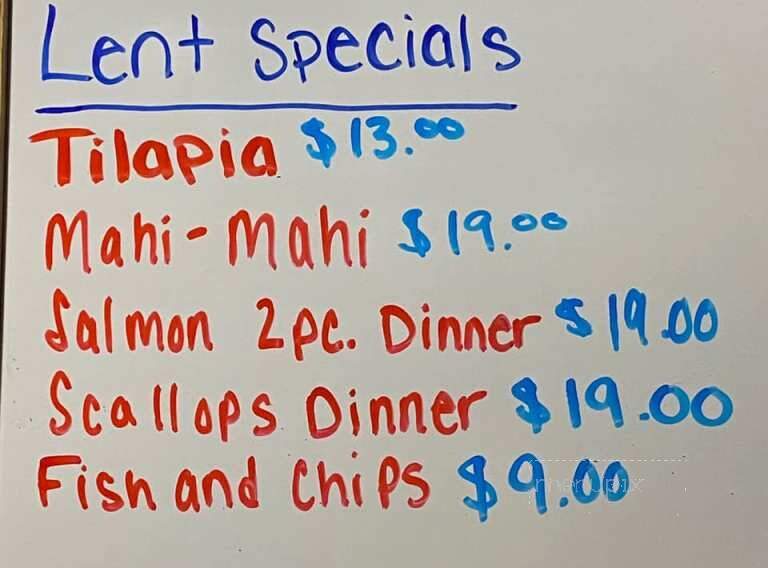 Lent Specials
Tilapia $13.00
Mahi-Mahi $19.00
Salmon 2pc. Dinner $19.00
Scallops Dinner $19.00
Fish and Chips $9.00
menupix